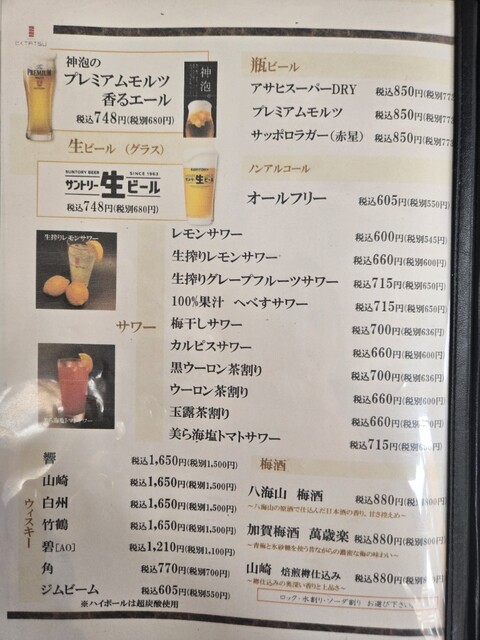 神泡の
プレミアムモルツ
香るエール
税込748円(税別680円)
神泡。
生ビール (グラス)
SUNTORY BEER SINCE 1963
サントリー生ビール
税込748円(税別680円)
瓶ビール
アサヒスーパーDRY 税込850円(税別773
プレミアムモルツ 税込850円(税別773
サッポロラガー(赤星) 税込850円(税別773
ノンアルコール
オールフリー 税込605円(税別550円)
生搾りレモンサワー
サワー
レモンサワー 税込600円(税別545円)
生搾りレモンサワー 税込660円(税別600円)
生搾りグレープフルーツサワー 税込715円(税別650円)
100%果汁 へべすサワー 税込715円(税別650円)
梅干しサワー 税込700円(税別636円)
カルピスサワー 税込660円(税別600円)
黒ウーロン茶割り 税込700円(税別636円)
ウーロン茶割り 税込660円(税別600円)
玉露茶割り 税込660円(税別
美ら海塩トマトサワー 税込715円(税別
ウィスキー
響 税込1,650円(税別1,500円)
山崎 税込1,650円(税別1,500円)
白州 税込1,650円(税別1,500円)
竹鶴 税込1,650円(税別1,500円)
碧[AO] 税込1,210円(税別1,100円)
角 税込770円(税別700円)
ジムビーム 税込605円(税別550円)
※ハイボールは超炭酸使用
梅酒
八海山 梅酒 税込880円(税別800円)
〜八海山の原酒で仕込んだ日本酒の香り。甘さ控えめ〜
加賀梅酒 萬歳楽 税込880円(税別800円)
〜青梅と氷砂糖を使う昔ながらの濃密な梅の味わい〜
山崎 焙煎樽仕込み 税込880円(税別800円)
〜樽仕込みの奥深い香りと上品さ〜
ロック・水割り・ソーダ割り お選び下さい。